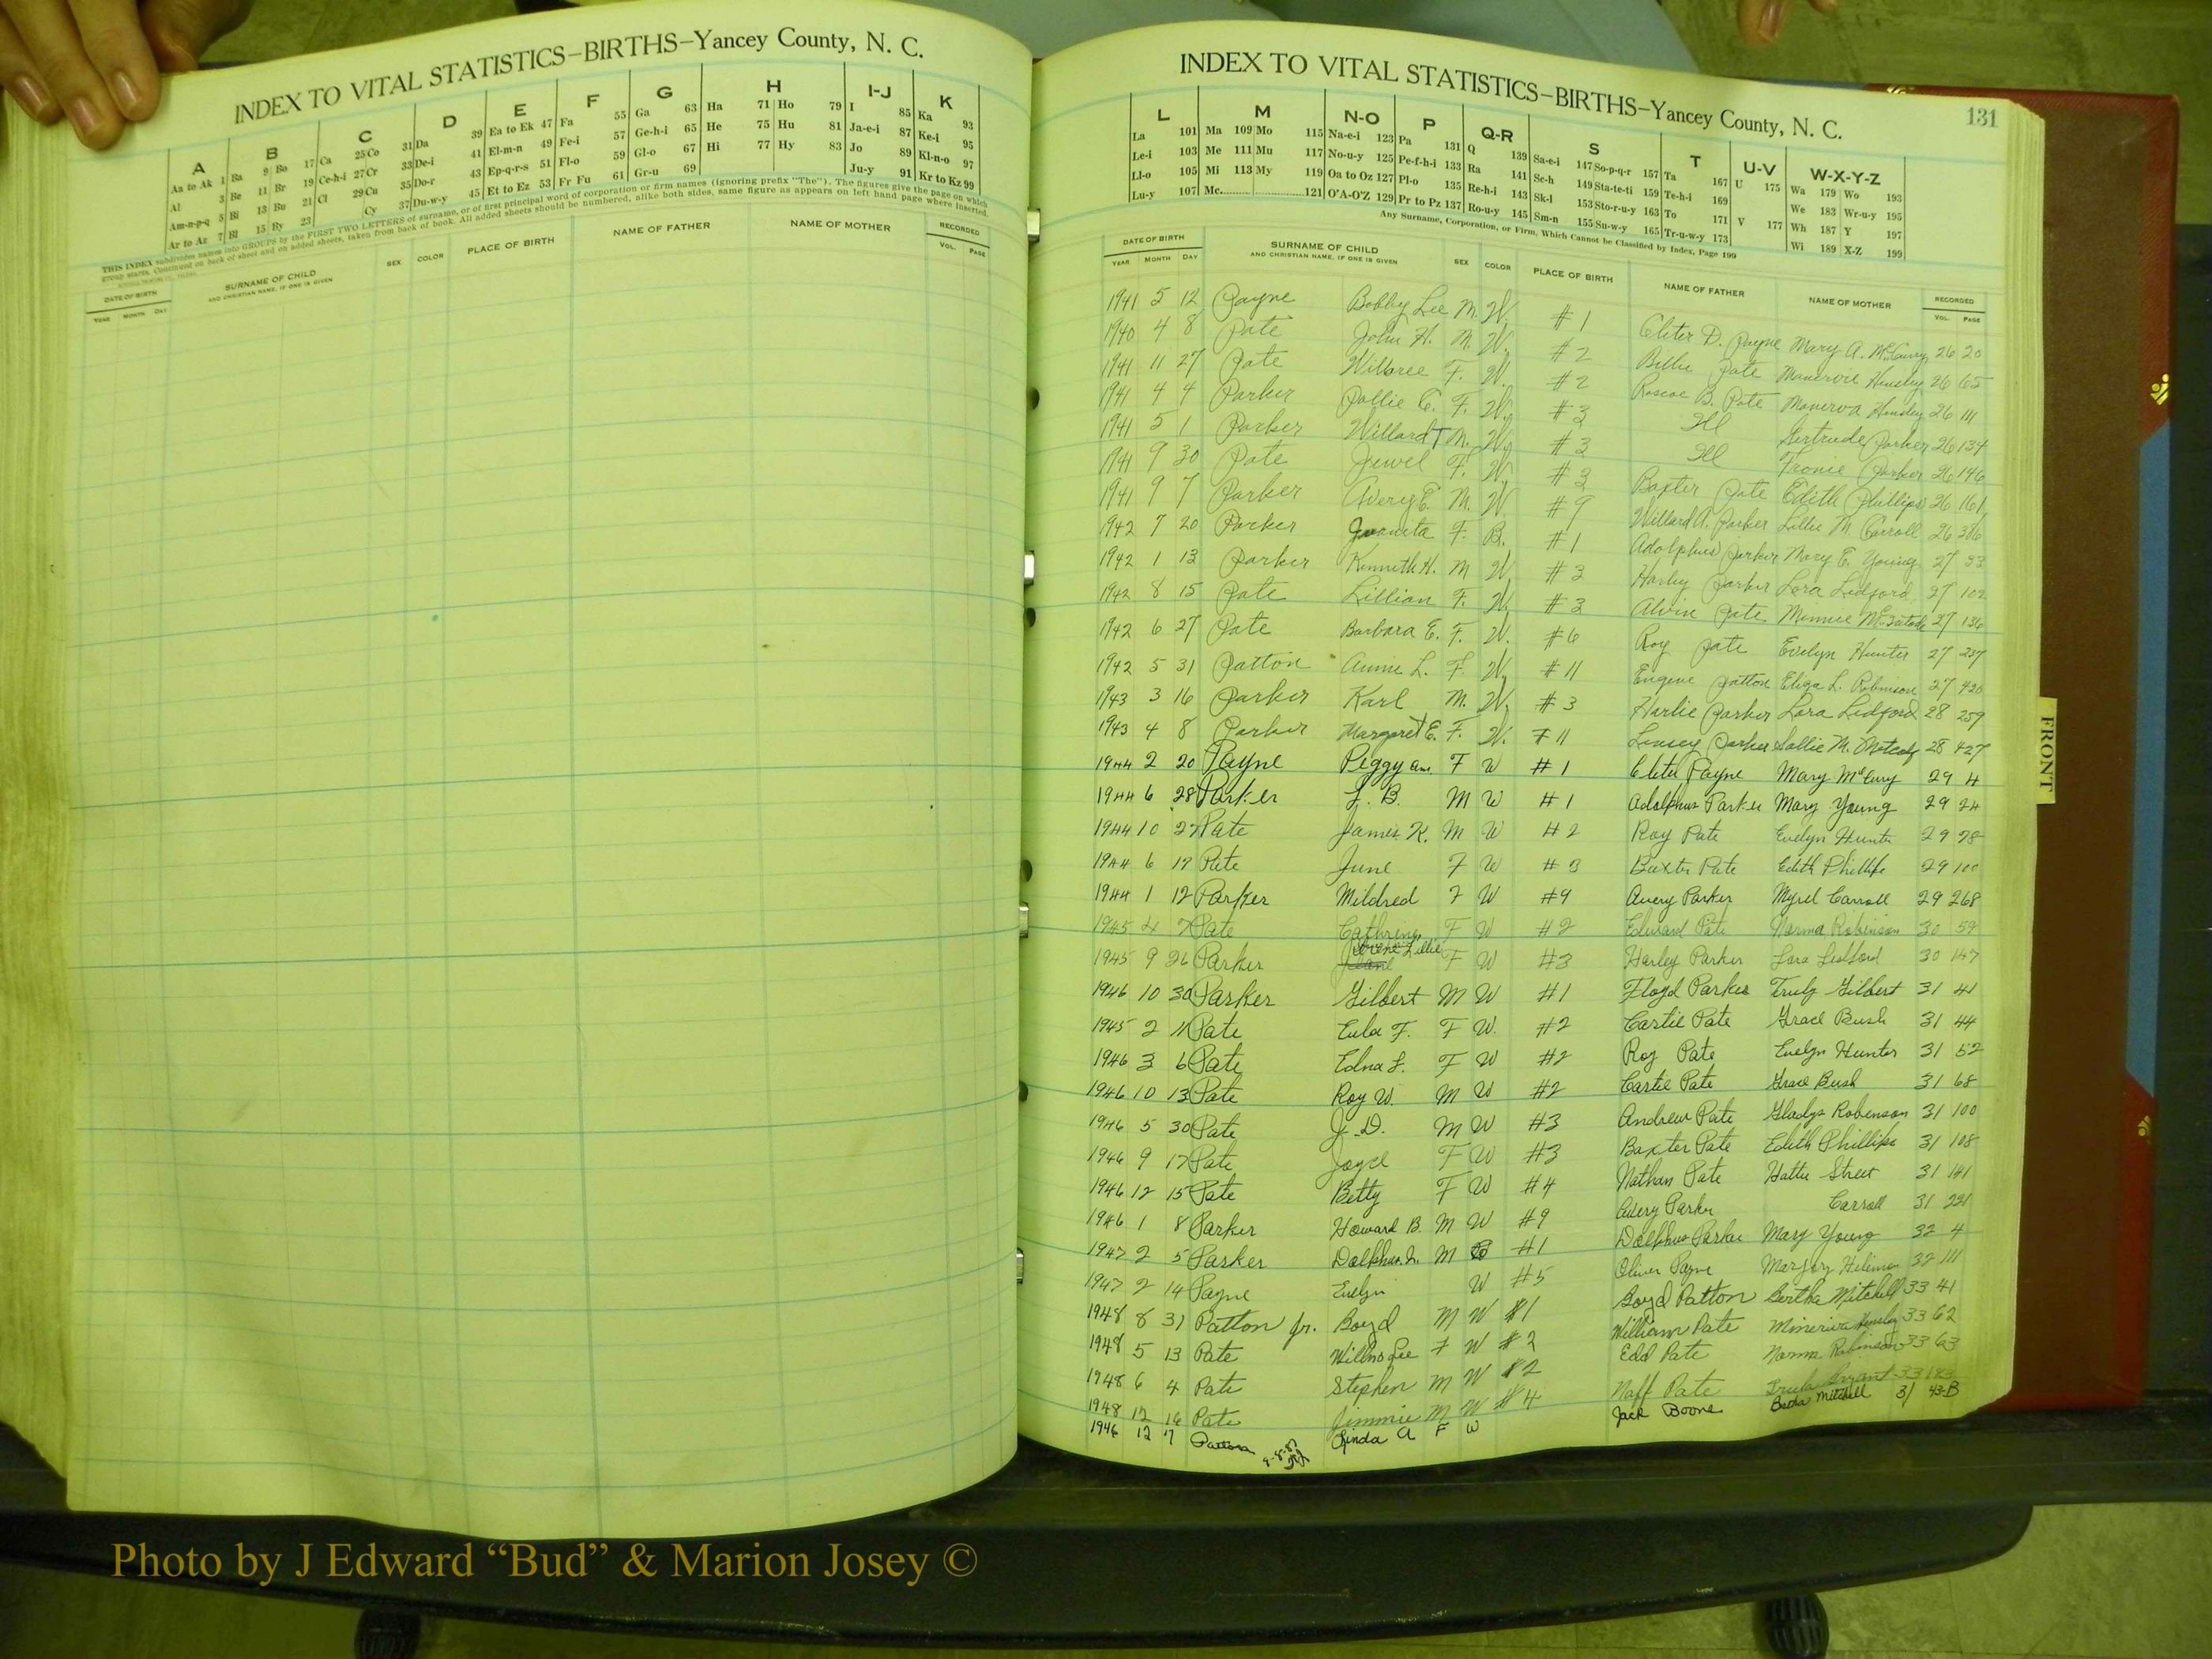 INDEX TO VITAL STATISTICS—BIRTHS—Yancey County, N. C.
A B C D E F G H I-J K
Aa to Ak 1 Ba 9 Bo 17 Ca 25 Co 31 Da 39 Ea to Ek 47 Fa 55 Ga 63 Ha 71 Ho 79 I 85 Ka 93
Al 3 Be 11 Br 19 Ce-h-i 27 Cr 33 De-i 41 El-m-n 49 Fe-i 57 Ge-h-i 65 He 75 Hu 81 Ja-e-i 87 Ke-i 95
Am-n-p-q 5 Bi 13 Bu 21 Cl 29 Cu 35 Do-r 43 Ep-q-r-s 51 Fl-o 59 Gl-o 67 Hi 77 Hy 83 Jo 89 Kl-n-o 97
Ar to Az 7 Bl 15 By 23 Cy 37 Du-w-y 45 Et to Ez 53 Fr Fu 61 Gr-u 69 Ju-y 91 Kr to Kz 99
THIS INDEX subdivides names into GROUPS by the FIRST TWO LETTERS of surname, or of first principal word of corporation or firm names (ignoring prefix "The"). The figures give the page on which
group starts. Continued on back of sheet and on added sheets, taken from back of book. All added sheets should be numbered, alike both sides, same figure as appears on left hand page where inserted.
DATE OF BIRTH SURNAME OF CHILD SEX COLOR PLACE OF BIRTH NAME OF FATHER NAME OF MOTHER RECORDED
YEAR MONTH DAY AND CHRISTIAN NAME, IF ONE IS GIVEN VOL. PAGE
INDEX TO VITAL STATISTICS—BIRTHS—Yancey County, N. C. 131
L M N-O P Q-R S T U-V W-X-Y-Z
La 101 Ma 109 Mo 115 Na-e-i 123 Pa 131 Q 139 Sa-e-i 147 So-p-q-r 157 Ta 167 U 175 Wa 179 Wo 193
Le-i 103 Me 111 Mu 117 No-u-y 125 Pe-f-h-i 133 Ra 141 Sc-h 149 Sta-te-ti 159 Te-h-i 169 We 183 Wr-u-y 195
Ll-o 105 Mi 113 My 119 Oa to Oz 127 Pl-o 135 Re-h-i 143 Sk-l 153 Sto-r-u-y 163 To 171 V 177 Wh 187 Y 197
Lu-y 107 Mc 121 O'A-O'Z 129 Pr to Pz 137 Ro-u-y 145 Sm-n 155 Su-w-y 165 Tr-u-w-y 173 Wi 189 X-Z 199
Any Surname, Corporation, or Firm, Which Cannot be Classified by Index, Page 199
DATE OF BIRTH SURNAME OF CHILD SEX COLOR PLACE OF BIRTH NAME OF FATHER NAME OF MOTHER RECORDED
YEAR MONTH DAY AND CHRISTIAN NAME, IF ONE IS GIVEN VOL. PAGE
1941 5 12 Payne Bobby Lee M. W. #1 Cleter D. Payne Mary A. 26 20
1940 4 8 Pate John H. M. W. #2 Billie Pate Hensley 26 65
1941 11 27 Pate F. W. #2 Roscoe B. Pate Manerva Hensley 26 111
1941 4 4 Parker Pollie C. F. W. #3 Ill Gertrude Parker 26 134
1941 5 1 Parker Willard T M. W. #3 Ill Fronie Parker 26 146
1941 9 30 Pate Jewel F. W. #3 Baxter Pate Edith Phillips 26 161
1941 9 7 Parker Avery E. M. W #9 Willard A. Parker Lillie M. Carroll 26
1942 7 20 Parker Juanita F. B. #1 Adolphus Parker Mary E. Young 27 33
1942 1 13 Parker Kenneth H. M W #3 Harley Parker Lora Ledford 27 102
1942 8 15 Pate Lillian F. W. #3 Alvin Pate Minnie 27 136
1942 6 27 Pate Barbara E. F. W. #6 Roy Pate Evelyn Hunter 27 237
1942 5 31 Patton Annie L. F. W. #11 Eugene Patton Eliza L. Robinson 27 420
1943 3 16 Parker Karl M. W. #3 Harlie Parker Lora Ledford 28 259
1943 4 8 Parker Margaret E. F. W. #11 Linsey Parker Sallie M. Metcalf 28 427
1944 2 20 Payne Peggy Ann F W #1 Cleter Payne Mary McCury 29 4
1944 6 28 Parker J. B. M W #1 Adolphus Parker Mary Young 29 24
1944 10 27 Pate James K. M W #2 Roy Pate Evelyn Hunter 29 78
1944 6 17 Pate June F W #3 Baxter Pate Edith Phillips 29 100
1944 1 12 Parker Mildred F W #9 Avery Parker Myrel Carroll 29 268
1945 4 7 Pate Cathrine F W #2 Edward Pate Norma Robinson 30 59
1945 9 26 Parker Irene Lillie F W #3 Harley Parker Lora Ledford 30 147
1946 10 30 Parker Gilbert M W #1 Floyd Parker Truly Gilbert 31 41
1945 2 11 Pate Eula F. F W. #2 Cartie Pate Grace Bush 31 44
1946 3 6 Pate Edna L. F W #2 Roy Pate Evelyn Hunter 31 52
1946 10 13 Pate Roy W. M W #2 Cartie Pate Grace Bush 31 68
1946 5 30 Pate J. D. M W #3 Andrew Pate Gladys Robenson 31 100
1946 9 17 Pate Joyce F W #3 Baxter Pate Edith Phillips 31 108
1946 12 15 Pate Betty F W #4 Nathan Pate Hattie Street 31 141
1946 1 8 Parker Howard B. M W #9 Avery Parker Carroll 31 221
1947 2 5 Parker Dolphus L. M #1 Dolphus Parker Mary Young 32 4
1947 2 14 Payne Evelyn W #5 Oliver Payne Margery 32 111
1948 8 31 Patton Jr. Boyd M W #1 Boyd Patton Bertha Mitchell 33 41
1948 5 13 Pate Willno Lee F W #2 William Pate Minerva Hensley 33 62
1948 6 4 Pate Stephen M W #2 Edd Pate Norma Robinson 33 63
1948 12 16 Pate Jimmie M W #4 Naff Pate Bryant 33 183
1946 12 7 Patton 9-8-87 Linda A F W Jack Boone Bertha Mitchell 31 43-B
FRONT
Photo by J Edward “Bud” & Marion Josey ©